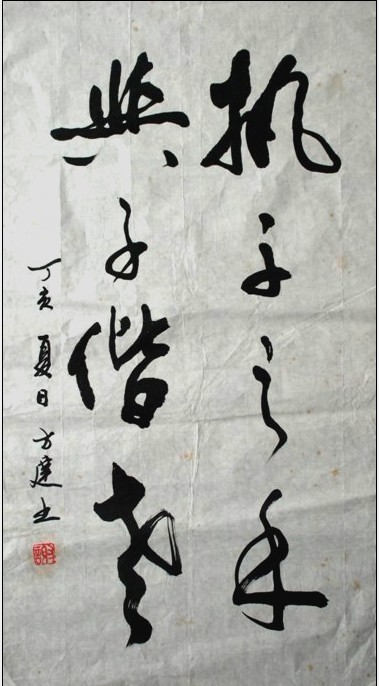 執子之手
與子偕老
丁亥夏日方建書